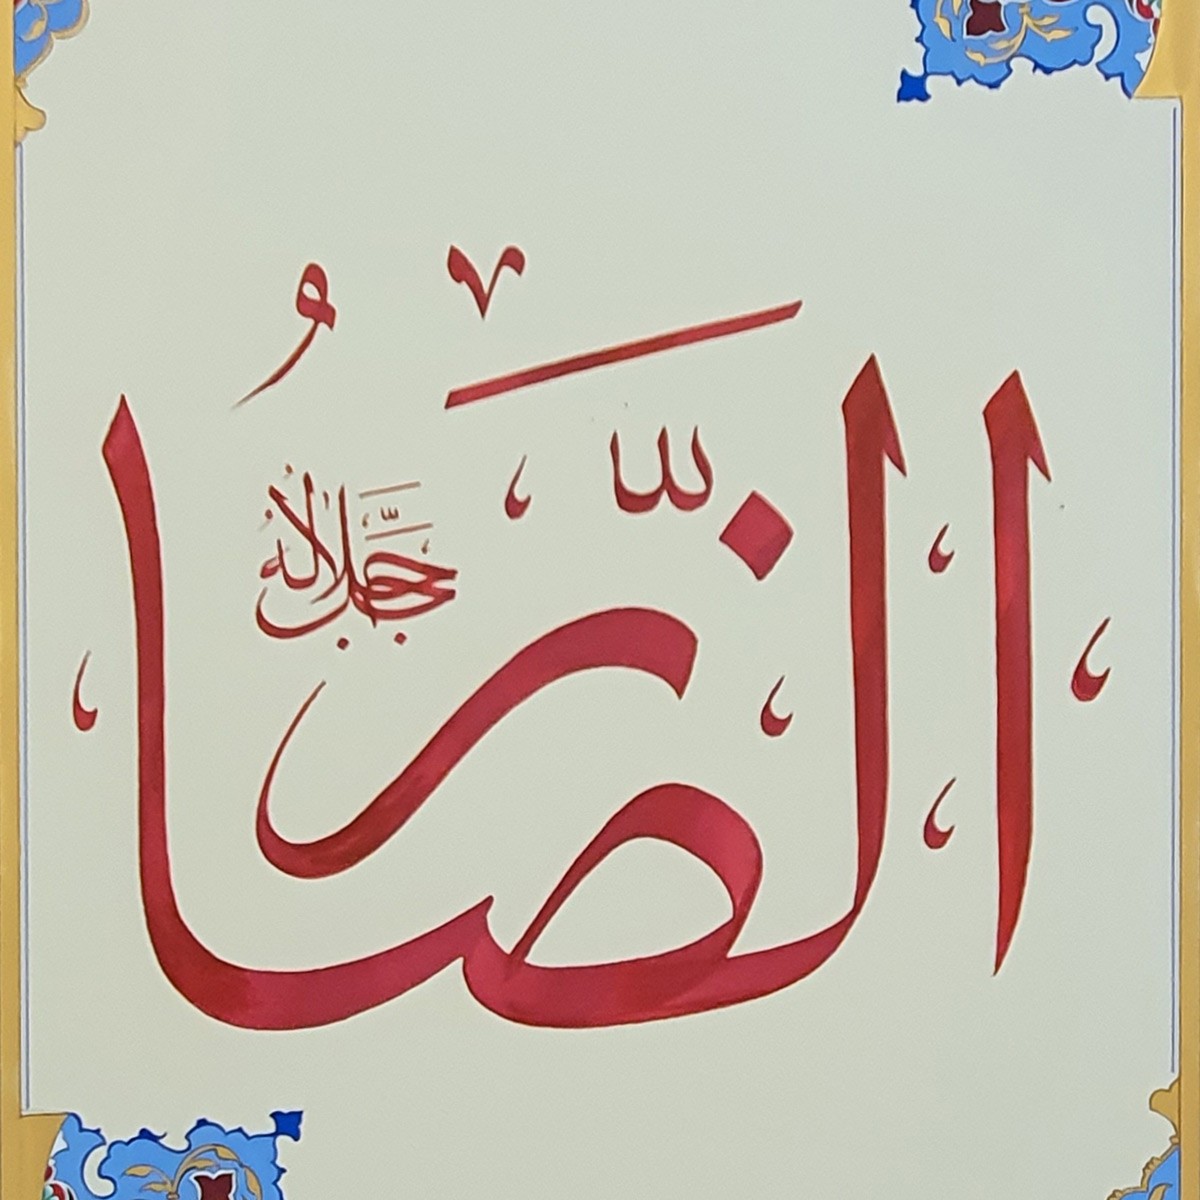 الضَّارُ
جَلَّ جَلَالُهُ